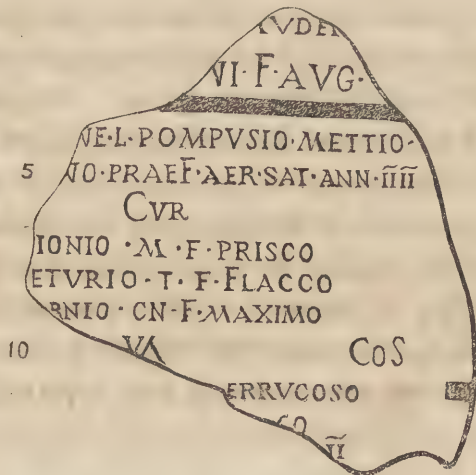 VDE
VI·F·AVG·
NE·L·POMPVSIO·METTIO·
5 NO·PRAEF·AER·SAT·ANN·IIII
CVR
IONIO·M·F·PRISCO
ETVRIO·T·F·FLACCO
RNIO·CN·F·MAXIMO
10 VA COS
ERRVCOSO
CO
II